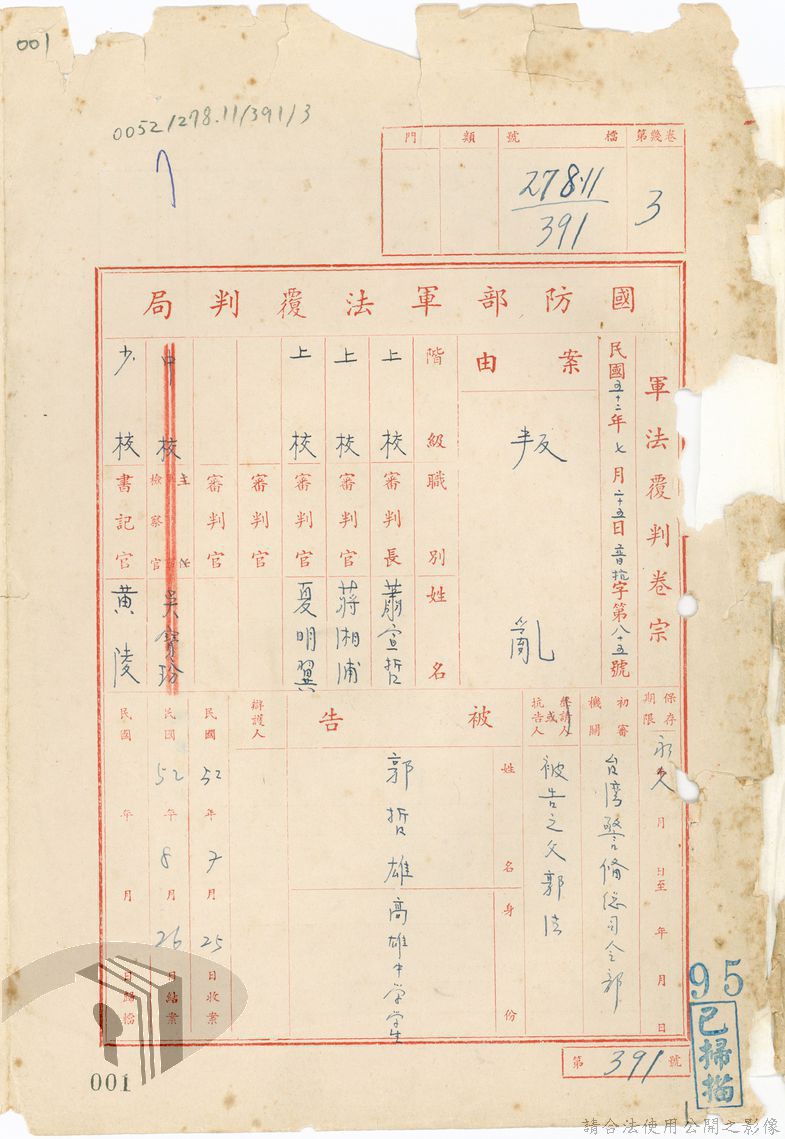 001
0052/278.11/391/3
第幾卷 3
檔號 278.11/391
類
門
國防部軍法覆判局
軍法覆判卷宗
民國五十二年七月二十五日 字第八十五號
案由
叛亂
階級 職別 姓名
上校 審判長 蕭宣哲
上校 審判官 蔣湘浦
上校 審判官 夏明翼
審判官
審判官
中校 主任軍事檢察官 吳寶珍
少校 書記官 黃陵
保存期限 永久 月 日至 年 月 日
初審機關 台湾警俻总司令部
聲請人或抗告人 被告之父郭法
被告
姓名 郭哲雄
身份 高雄中学学生
辯護人
民國52年7月25日收案
民國52年8月26日結案
民國 年 月 日歸檔
第391號
95
已掃描
001
請合法使用公開之影像